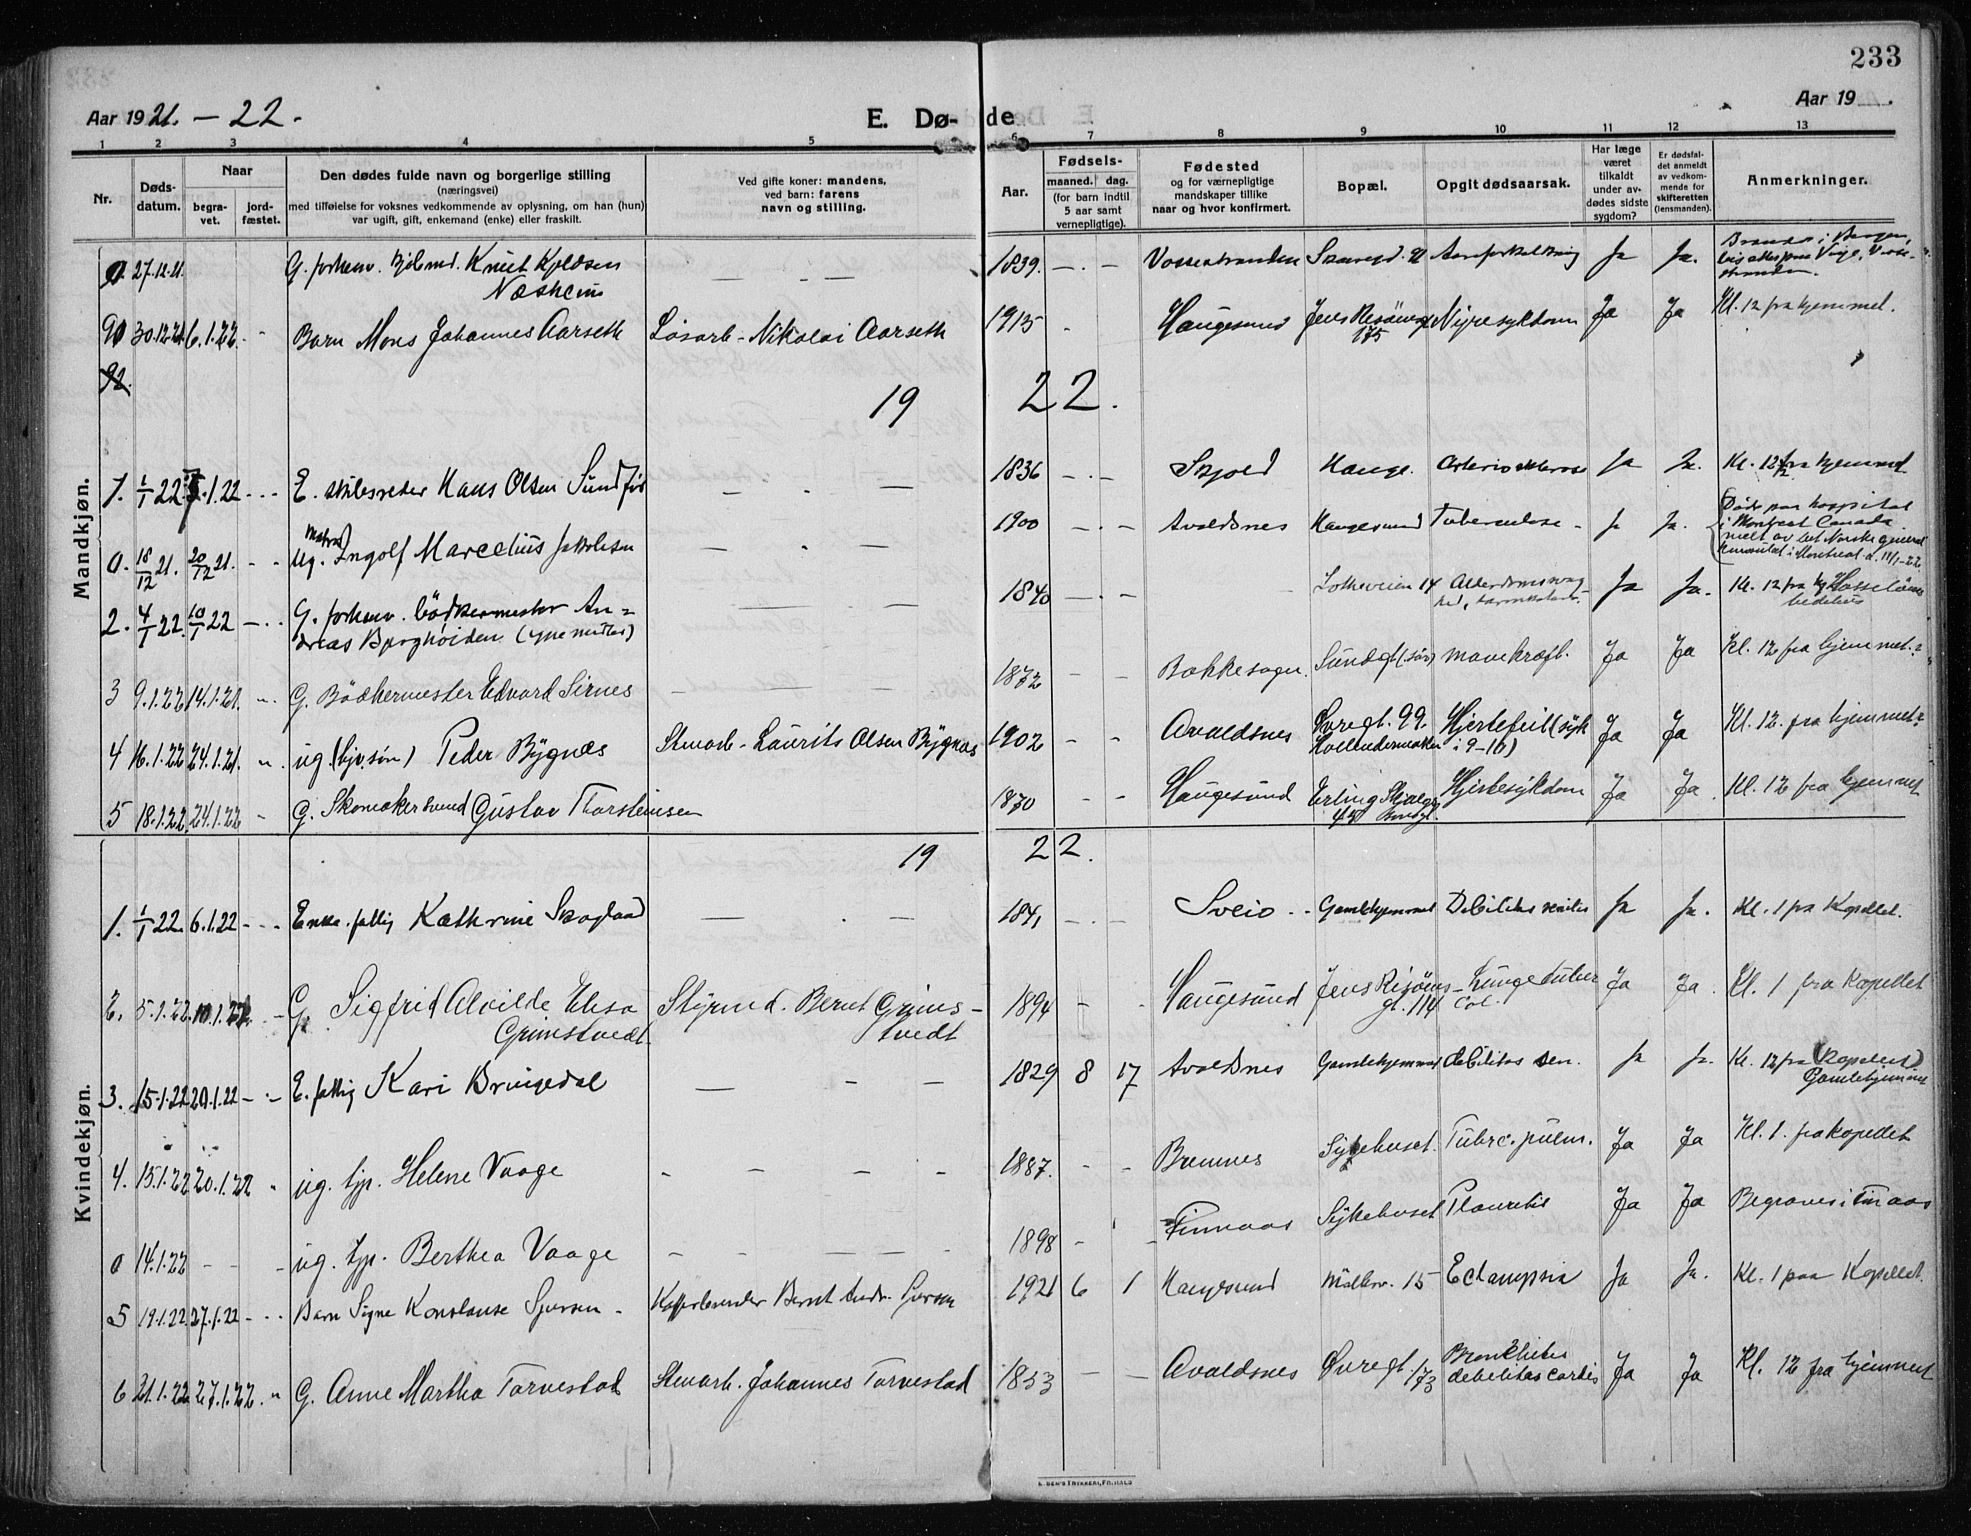 233
Aar 1921. – 22.
E. Dø-de
Aar 19
1 2 3 4 5 6 7 8 9 10 11 12 13
Nr.
Døds-datum.
Naar
begra-vet.
jord-fæstet.
Den dødes fulde navn og borgerlige stilling
(næringsvei)
med tilføielse for voksnes vedkommende av oplysning, om han (hun)
var ugift, gift, enkemand (enke) eller fraskilt.
Ved gifte koner: mandens,
ved barn: farens
navn og stilling.
Aar.
Fødsels-
maaned. dag.
(for barn indtil
5 aar samt
vernepligtige).
Fødested
og for værnepligtige
mandskaper tillike
naar og hvor konfirmert.
Bopæl.
Opgit dødsaarsak.
Har læge
været
tilkaldt
under av-
dødes sidste
sygdom?
Er dødsfal-
det anmeldt
av vedkom-
mende for
skifteretten
(lensmanden).
Anmerkninger.
Mandkjøn.
0. 27.12.21 G. forhenv. Knut
Næsheim — — 1839. — . — Vossestranden Ja Ja.
90 30.12.21 6.1.22 - Barn Mons Johannes Aarseth Løsarb - Nikolai Aarseth 1915 - Haugesund Jens Risøens gt 175 Nyresykdom Ja Ja Kl. 12 fra hjemmet.
92.
19 22.
1. 1/1 22 .1.22 - - - E. skibsreder Hans Olsen Sundfør — — — 1836 — . — Skjold Hauge. Arteriosklerose Ja Ja. Kl. 12 fra hjemmet
0. 18/12 21. 20/12 21. - - Ug. Ingolf Marcelius Jakobsen — — — 1900 — . — Avaldsnes Haugesund Tuberculose - Ja Ja. Døde paa hospital
i Montreal Canada
melt av det Norske general
konsulat i Montreal d. 11/1-22
2. 4/1 22. 10/1 22 — . . G. forhenv. bødkermester An=
dreas Bjorghøiden 1840 — . — - 14 Ja Ja. Kl. 12 fra
bedehus
3 9.1.22 14.1.21. - G. Bødkermester Edvard Sirnes — — — 1872 - - Bokkesogn. Sundgt (sør) mavekræft. Ja Ja Kl. 12 fra hjemmet.
4 16.1.22 24.1.21. - ug. (hjv.søn) Peder Bygnæs Stenarb - Laurits Olsen Bygnæs 1902 - - Avaldsnes Øvregt. 99. Hjertefeil (syk
i 9-10) Ja Ja Kl. 12. fra hjemmet
5 18.1.22 24.1.22 - G. Skomakersvend Gustav Thorsteinsen 1870 - - Haugesund Erling Skjalgs Hjertesykdom Ja Ja. Kl. 12 fra hjemmet
Kvindekjøn.
19 22.
1. 1/1 22. 6.1.22 - - - Enke. fattig Kathrine Skogland — . — 1841 — . — Sveio - - Gamlehjemmet Debilitas senilis Ja Ja. Kl. 1 fra Kapellet.
2. 5.1.22 10.1.22 - G. Sigfrid Alvilde Elisa
Grimstvedt Styrmd. Bernt Grims-
tvedt 1894 - - Haugesund Jens Risøens
gt. 114 Lungetuber
col. Ja Ja. Kl. 1 fra Kapellet
3. 15.1.22 20.1.22 - - E. fattig Kari Bringedal — — — 1829 8 17 Avaldsnes Gamlehjemmet debilitas sen. Ja Ja. Kl. 12 fra (Kapellet)
Gamlehjemmet
4. 15.1.22 20.1.22 - ug. tjp. Helene Vaage - - - - 1887. - - Bremnes Sykehuset. Tubrc. pulm. Ja Ja Kl. 1. fra kapellet
0 14.1.22 - - - ug. tjp. Berthea Vaage - - - - 1898 - - Finnaas Sykehuset Plauritis Ja Ja Begraves i Finaas
5 19.1.22 27.1.22 - - - Barn Signe Konstanse - Bernt Andr. 1921 6 1 Haugesund 15 Eclampsia Ja Ja. Kl. 1 paa Kapellet.
6 21.1.22 27.1.22. " G. Anne Martha Torvestad Stenarb. Johannes Torvestad 1853 - - Avaldsnes Øvregt. 173 Bronkhitis
debilitas cordis Ja Ja Kl. 12 fra hjemmet